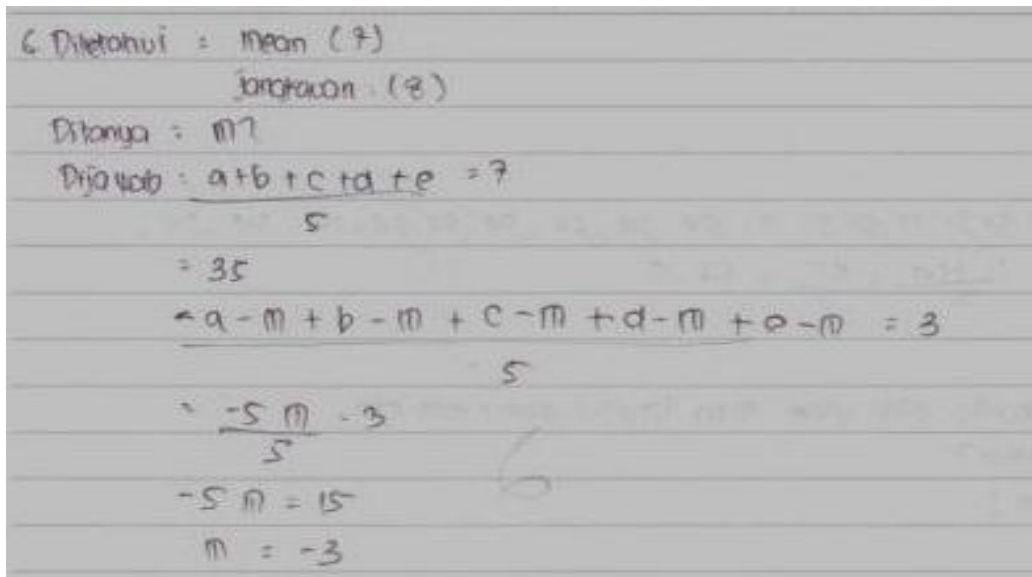 6 Diketahui = mean (7)
Jangkauan : (8)
Ditanya : m?
Dijawab : a+b+c+d+e = 7
5
= 35
= a - m + b - m + c - m + d - m + e - m = 3
5
= -5 m = 3
5
-5 m = 15
m = -3